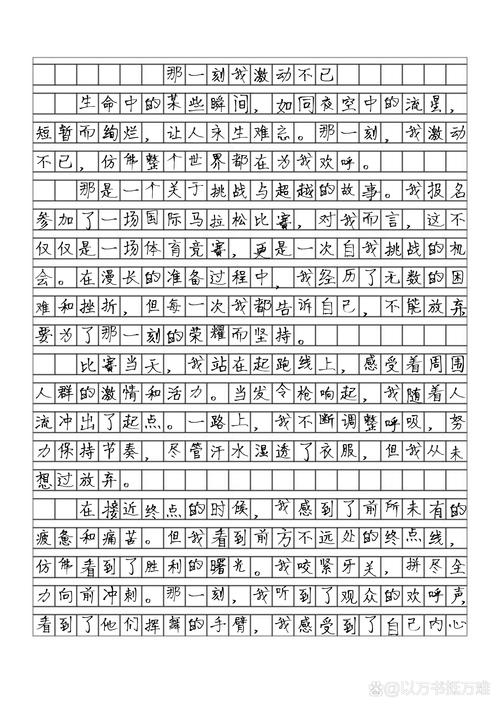 那一刻我激动不已
生命中的某些瞬间，如同夜空中的流星，
短暂而绚烂，让人永生难忘。那一刻，我激动
不已，仿佛整个世界都在为我欢呼。
那是一个关于挑战与超越的故事。我报名
参加了一场国际马拉松比赛，对我而言，这不
仅仅是一场体育竞赛，更是一次自我挑战的机
会。在漫长的准备过程中，我经历了无数的困
难和挫折，但每一次我都告诉自己，不能放弃
要为了那一刻的荣耀而坚持。
比赛当天，我站在起跑线上，感受着周围
人群的激情和活力。当发令枪响起，我随着人
流冲出了起点。一路上，我不断调整呼吸，努
力保持节奏，尽管汗水湿透了衣服，但我从未
想过放弃。
在接近终点的时候，我感到了前所未有的
疲惫和痛苦。但我看到前方不远处的终点线，
仿佛看到了胜利的曙光。我咬紧牙关，拼尽全
力向前冲刺。那一刻，我听到了观众的欢呼声，
看到了他们挥舞的手臂，我感受到了自己内心
@以万书抵万难